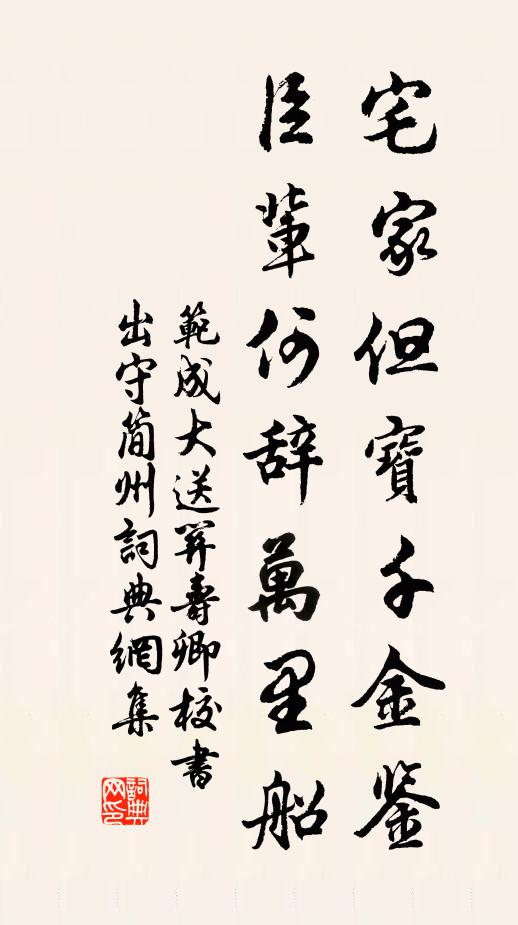 宅家但寶千金鑒
臣輩何辞萬里船
範成大送關壽卿校書
出守簡州詞典網集
詞典
网印